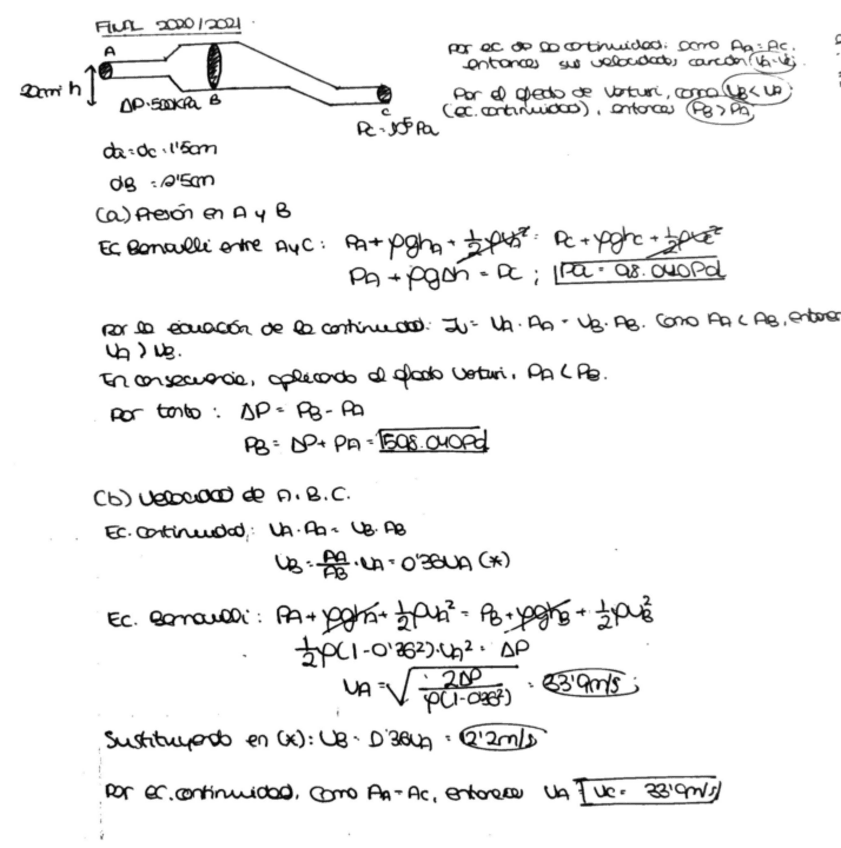 FINAL 2020/2021
A
20cm: h
ΔP=500KPa
B
C
Pc=10⁵Pa
Por ec de la continuidad: como AA=AC,
entonces sus velocidades también
Por el efecto de Venturi, como UB<UA
(ec.continuidad), entonces PB>PA
da=dc=1'5cm
dB=2'5cm
(a) Presión en A y B
Ec Bernoulli entre A y C: PA+ρghA+½ρUA²=Pc+ρghc+½ρUc²
PA+ρgΔh=Pc; Pa=98.040Pa
Por la ecuación de la continuidad: Iv=UA·AA=UB·AB. Como AA<AB,
UA>UB.
En consecuencia, aplicando el efecto Venturi, PA<PB.
Por tanto: ΔP=PB-PA
PB=ΔP+PA=598.040Pa
(b) Velocidad de A.B.C.
Ec.continuidad: UA·AA=UB·AB
UB=AA/AB·UA=0'36UA(*)
Ec. Bernoulli: PA+ρghA+½ρUA²=PB+ρghB+½ρUB²
½ρ(1-0'36²)·UA²=ΔP
UA=√(2ΔP/ρ(1-0'36²))=33'9m/s;
Sustituyendo en (*): UB=0'36UA=12'2m/s
Por ec.continuidad, como AA=AC, entonces UA=Uc=33'9m/s